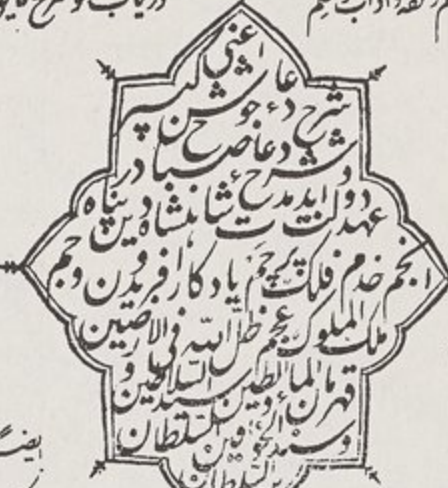 اعنی
شرح دعاء جوشن کبیر
و شرح دعا صباح در
عهد دولت ابد مدت شاهنشاه دین پناه
انجم خدم فلک پرچم یادگار افریدون و جم
ملک الملوک عجم ظل اللّه فی الارضین
قهرمان الماء و الطین سید السلاطین
و سند الخواقین السلطان
بن السلطان